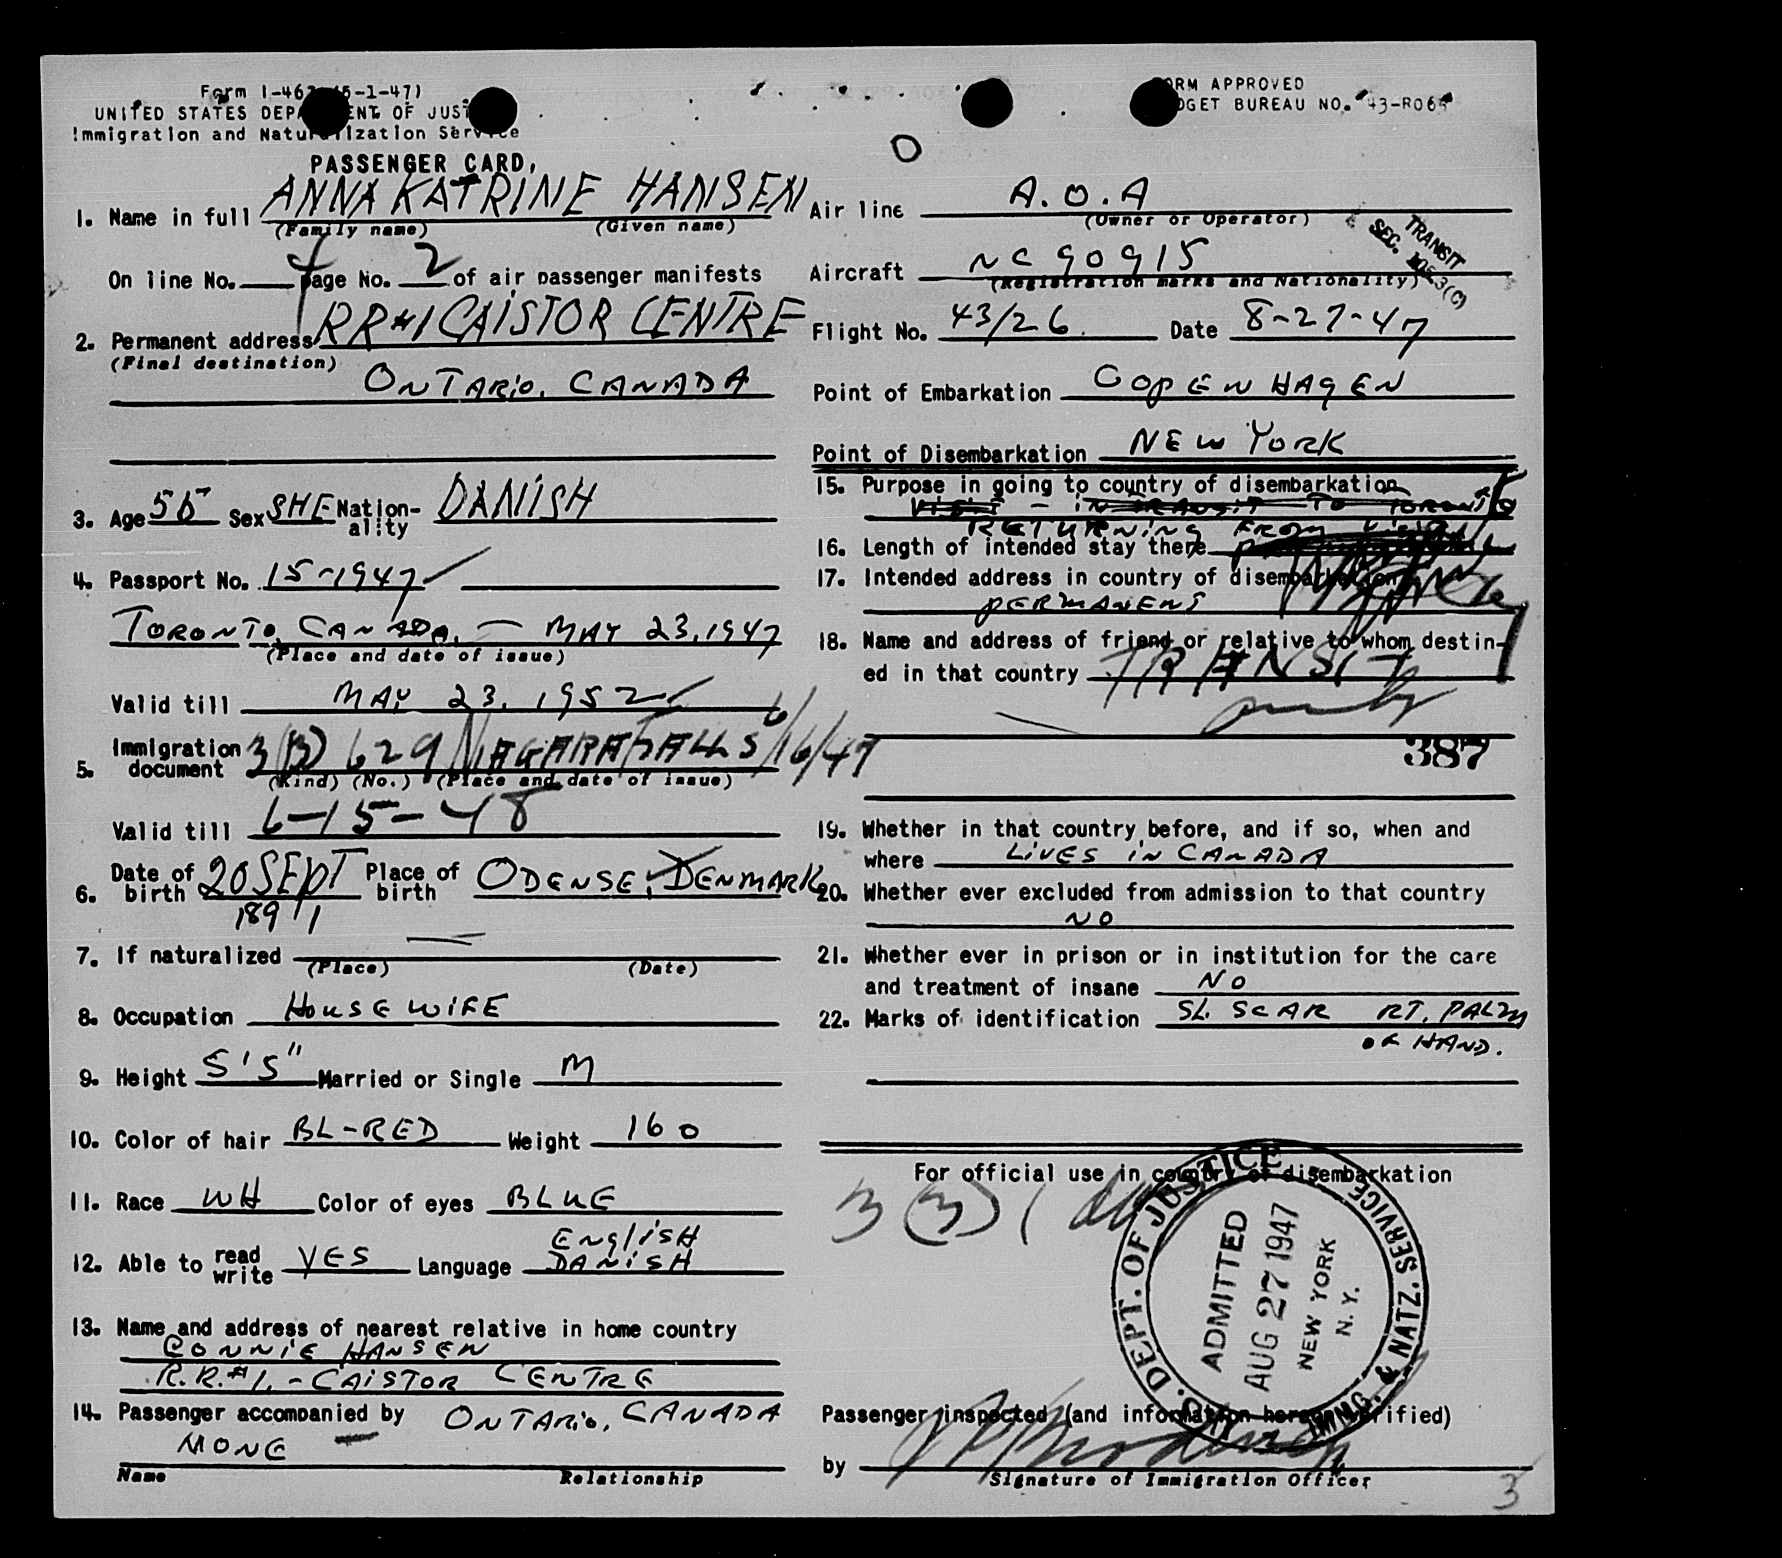 Form I-46 (5-1-47)
UNITED STATES DEP ENT OF JUS
Immigration and Natu ization Service
PASSENGER CARD,
1. Name in full ANNA KATRINE HANSEN
(Family name) (Given name)
On line No. 4 page No. 2 of air passenger manifests
2. Permanent address RR#1 CAISTOR CENTRE
(Final destination)
ONTARIO, CANADA
3. Age 55 Sex SHE Nation-ality DANISH
4. Passport No. 15-1947
TORONTO, CANADA, — MAY 23, 1947
(Place and date of issue)
Valid till MAY 23, 1952
5. Immigration document 3(3) 629 NIAGARA FALLS 6/16/47
(Kind) (No.) (Place and date of issue)
Valid till 6-15-48
6. Date of birth 20 SEPT 1891 Place of birth ODENSE, DENMARK
7. If naturalized —
(Place) (Date)
8. Occupation HOUSEWIFE
9. Height 5'5" Married or Single M
10. Color of hair BL-RED Weight 160
11. Race WH Color of eyes BLUE
12. Able to read write YES Language ENglISH DANISH
13. Name and address of nearest relative in home country
CONNIE HANSEN
R.R.#1. - CAISTOR CENTRE
ONTARIO, CANADA
14. Passenger accompanied by
NONE —
Name Relationship
ORM APPROVED
DGET BUREAU NO. 43-R064
O
Air line A.O.A
(Owner or Operator)
TRANSIT
SEC. 3(C)
Aircraft NC 90915
(Registration marks and Nationality)
Flight No. 43/26. Date 8-27-47
Point of Embarkation COPENHAGEN
Point of Disembarkation NEW YORK
15. Purpose in going to country of disembarkation
VISIT - IN TRANSIT TO TORONTO
RETURNING FROM VISIT
16. Length of intended stay there
17. Intended address in country of disembarkation
PERMANENT
18. Name and address of friend or relative to whom destin-
ed in that country TRANSIT
only
387
19. Whether in that country before, and if so, when and
where LIVES IN CANADA
20. Whether ever excluded from admission to that country
NO
21. Whether ever in prison or in institution for the care
and treatment of insane NO
22. Marks of identification SL. SCAR RT. PALM
OF HAND.
For official use in country of disembarkation
3 (3) 1
U.S. DEPT. OF JUSTICE
IMMG. & NATZ. SERVICE
ADMITTED
AUG 27 1947
NEW YORK
N.Y.
Passenger inspected (and information hereon verified)
by
Signature of Immigration Officer
3